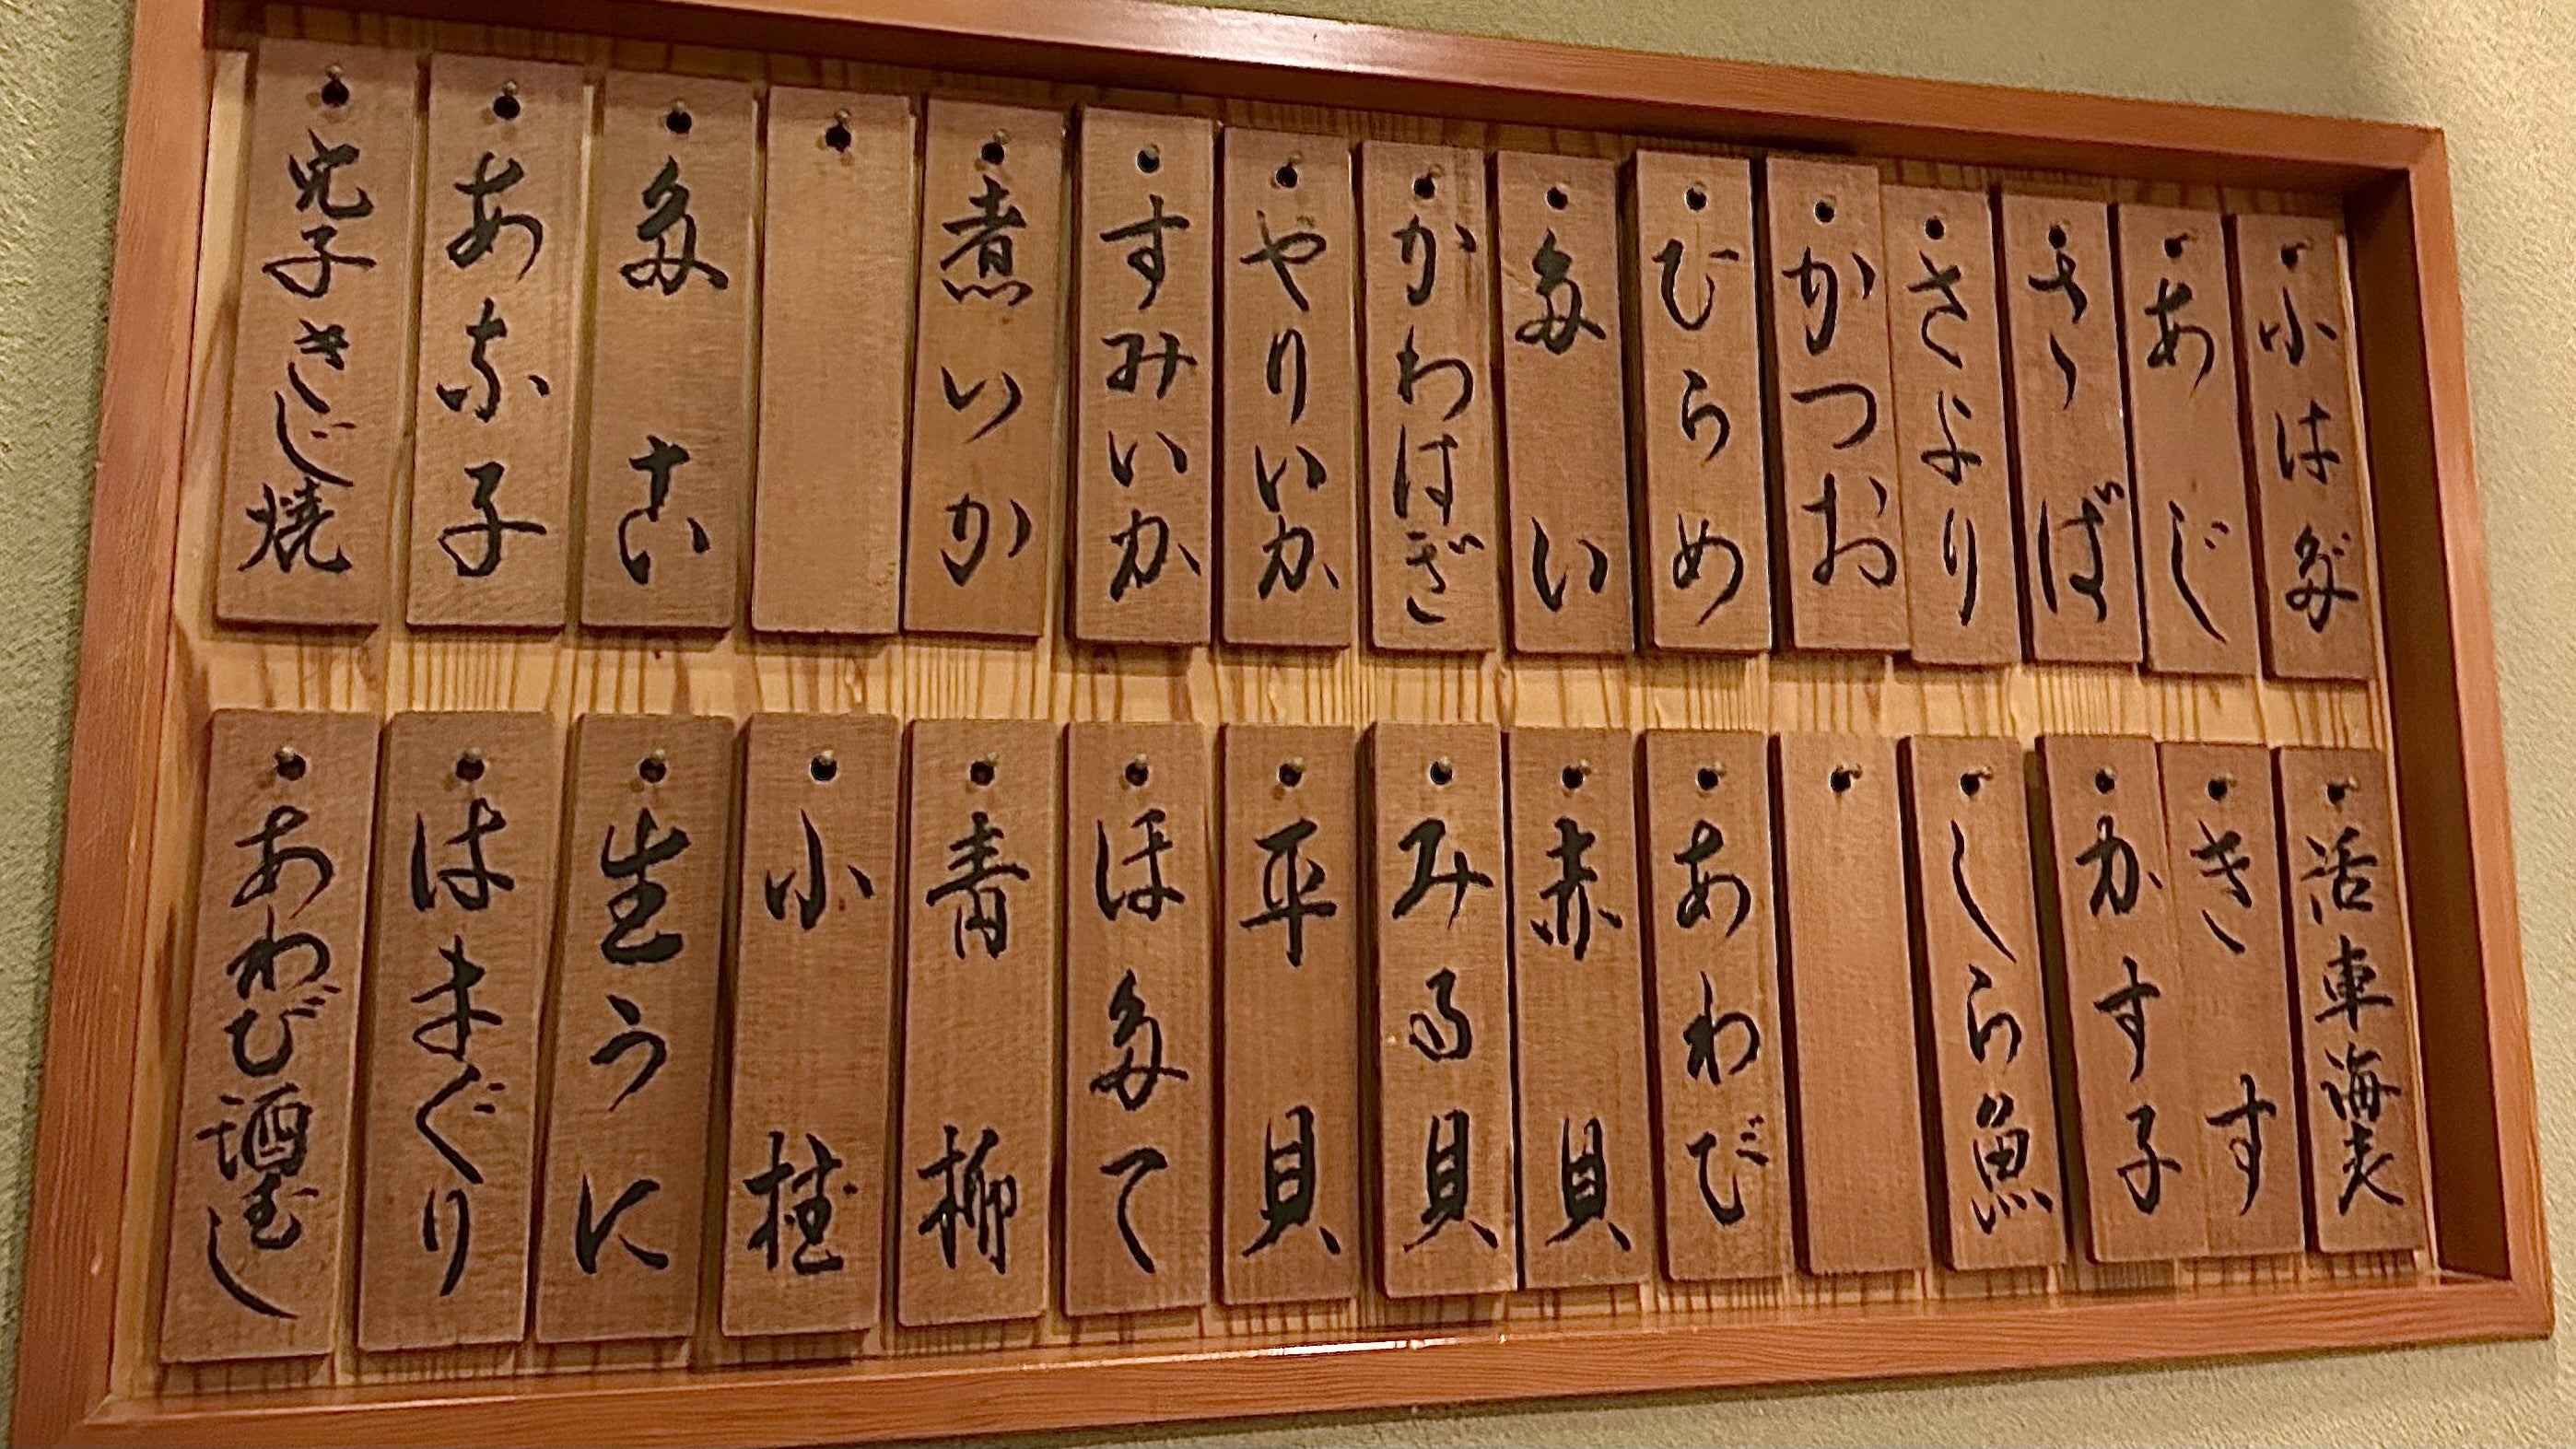 小はだ
あじ
さゝば
さより
かつお
ひらめ
たい
かわはぎ
やりいか
すみいか
煮いか
たこ
あな子
穴子きじ焼
活車海老
きす
かす子
しら魚
あわび
赤貝
みる貝
平貝
ほたて
青柳
小柱
生うに
はまぐり
あわび酒むし